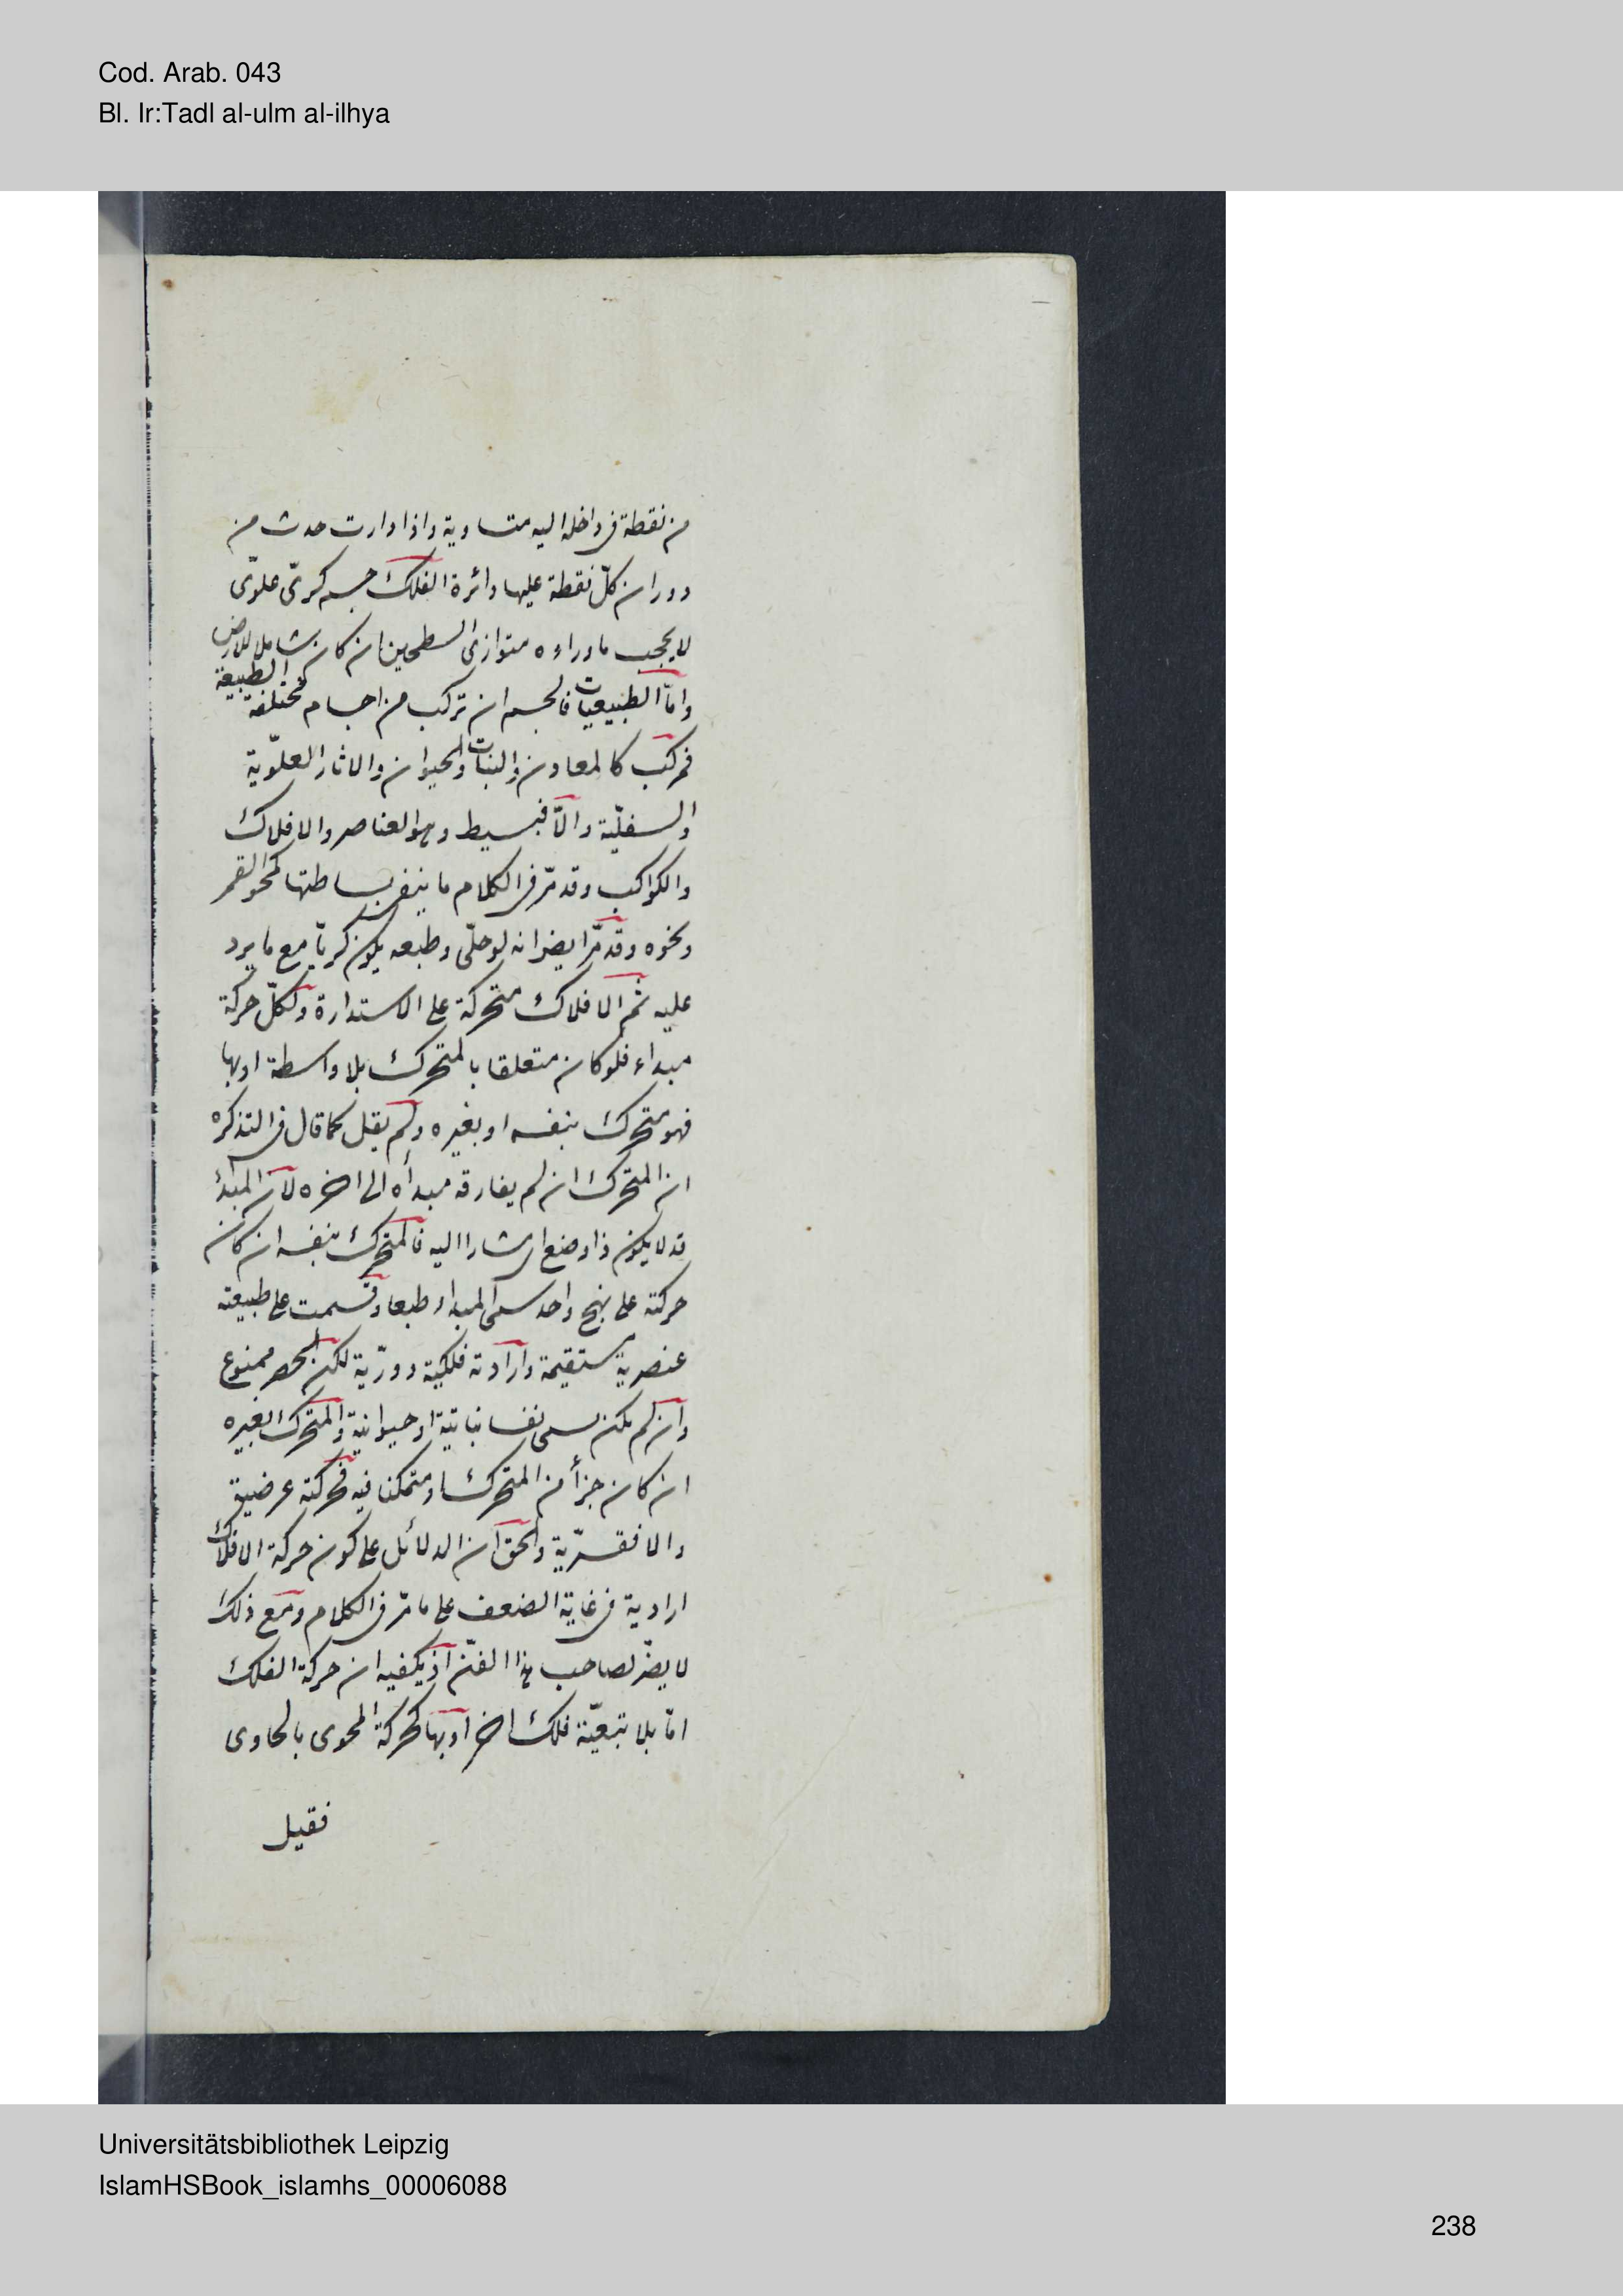 Cod. Arab. 043
Bl. Ir:Tadl al-ulm al-ilhya
من نقطة فى داخله اليه متساوية واذا دارت حدث من
دوران كلّ نقطة عليها دائرة الفلك جسم كرىّ علوّى
لا يحجب ماوراءه متوازى السطحين ان كان شاملا للارض
وامّا الطبيعيات فالجسم ان تركب من اجسام مختلفة الطبيعة
فمركب كالمعادن والنبات والحيوان والاثار العلوّية
والسفليّة والّا فبسيط وهو العناصر والافلاك
والكواكب وقد مرّ فى الكلام ما ينفى بساطتها كمحو القمر
ونحوه وقد مرّ ايضا انه لو خلّى وطبعه يكون كريّا مع ما يرد
عليه ثم الافلاك متحركة على الاستدارة ولكلّ حركة
مبداء فلو كان متعلقا بالمتحرك بلا واسطة او بها
فهو متحرك بنفسه او بغيره ولم يقل كما قال فى التذكره
ان المتحرك ان لم يفارقه مبدأه الى اخره لان المبدأ
قد لا يكون ذا وضع اى مشارا اليه فالمتحرك بنفسه ان كان
حركته على نهج واحد سمى المبداء طبعا وقسمت على طبيعته
عنصرية مستقيمة وارادته فلكية دورّية لكن الحصر ممنوع
وان لم يكن سمى نفسا نباتية او حيوانية والمتحرك بغيره
ان كان جزأ من المتحرك او متمكنا فيه فحركته عرضية
والا فقسرّية والحق ان الدلائل على كون حركة الافلاك
ارادية فى غاية الضعف على ما مرّ فى الكلام ومع ذلك
لا يضرّ لصاحب هذا الفنّ اذ يكفيه ان حركة الفلك
امّا بلا تبعيّة فلك اخر او بها كحركة المحوى بالحاوى
فقيل
Universitätsbibliothek Leipzig
IslamHSBook_islamhs_00006088
238